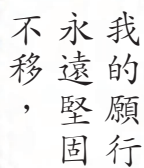 我的願行
永遠堅固
不移，